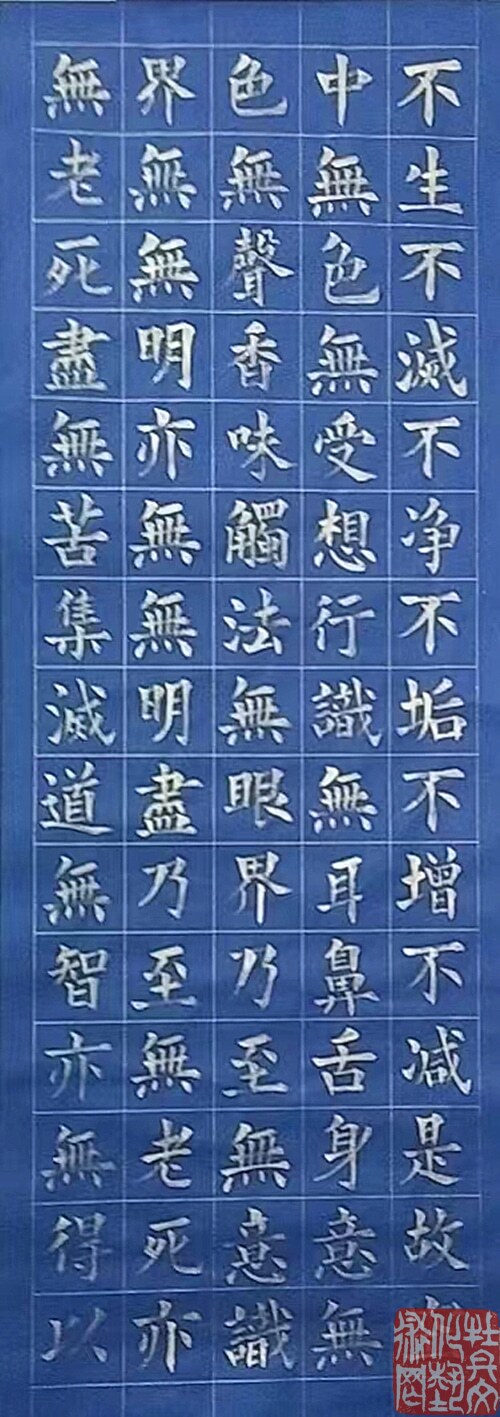 不生不滅不净不垢不增不减是故
中無色無受想行識無耳鼻舌身意無
色無聲香味觸法無眼界乃至無意識
界無無明亦無無明盡乃至無老死亦
無老死盡無苦集滅道無智亦無得以